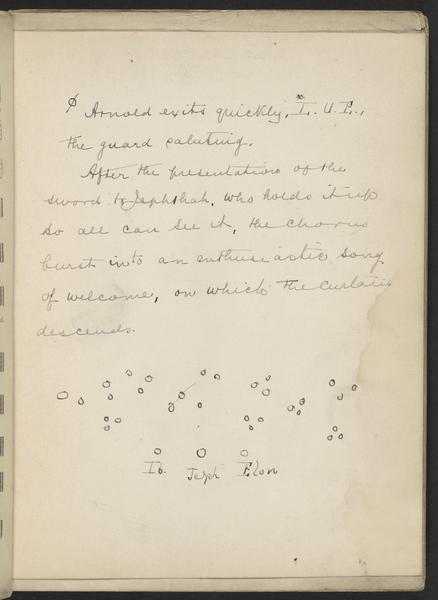 φ Arnold exits quickly, L. U. E.,
the guard saluting.
After the presentation of the
sword to Jephthah, who holds it up
so all can see it, the chorus
burst into an enthusiastic song
of welcome, on which the curtain
descends.
Ib. Jeph Elon